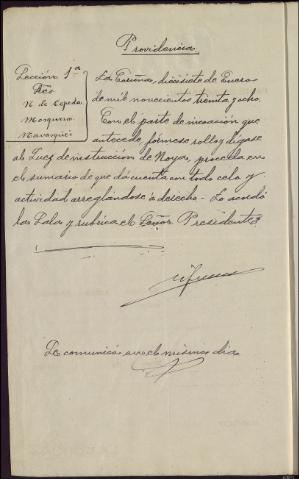 Providencia
Sección 1ª
Sres
N. de Cepeda
Mosquera
La Coruña, diecisiete de Enero
de mil novecientos treinta y ocho
Con el parte de incoación que
antecede fórmese rollo y dígase
al Juez de instrucción de Noya, proceda en
el sumario de que dá cuenta con todo celo y
actividad arreglándose a derecho - Lo acordó
la Sala y rubrica el Señor Presidente
Se comunicó en el mismo dia